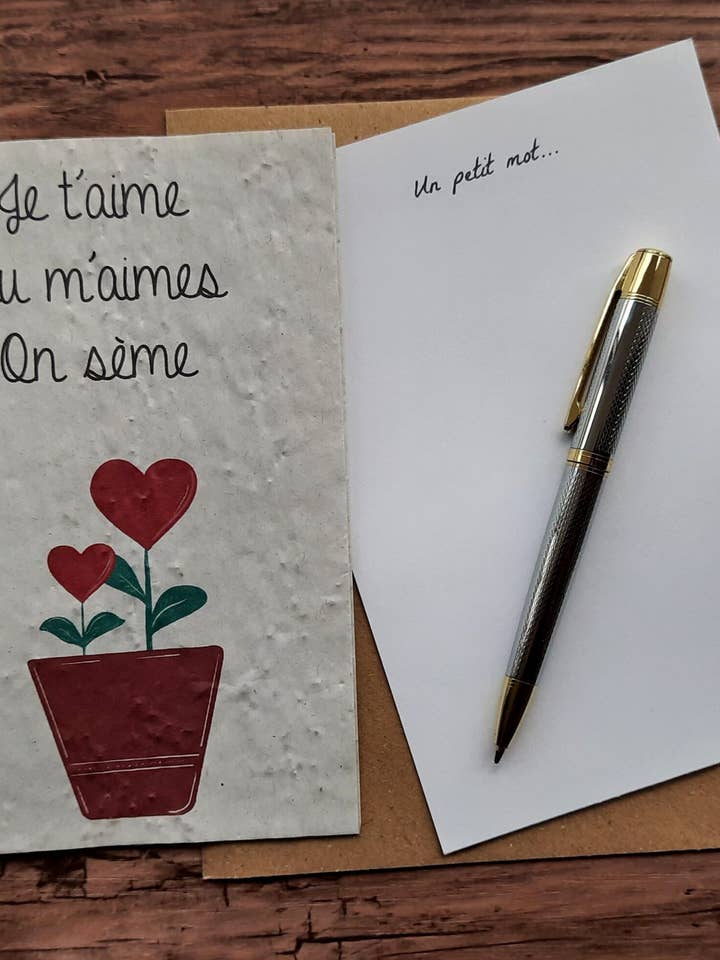 Je t'aime
u m'aimes
On sème
Un petit mot...